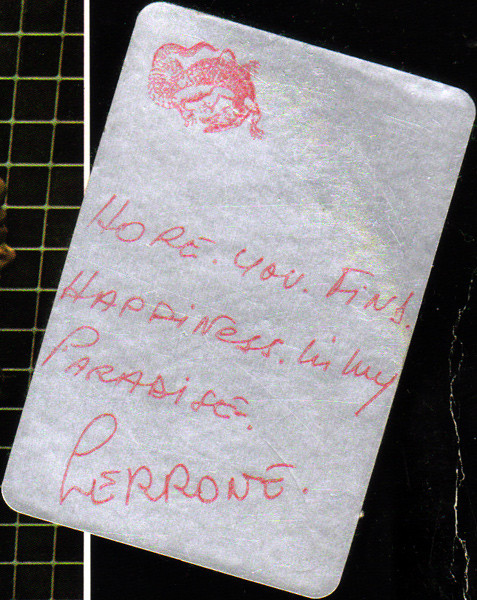 HOPE. YOU. FIND.
HAPPINESS. in my
PARADISE.
PERRONE.